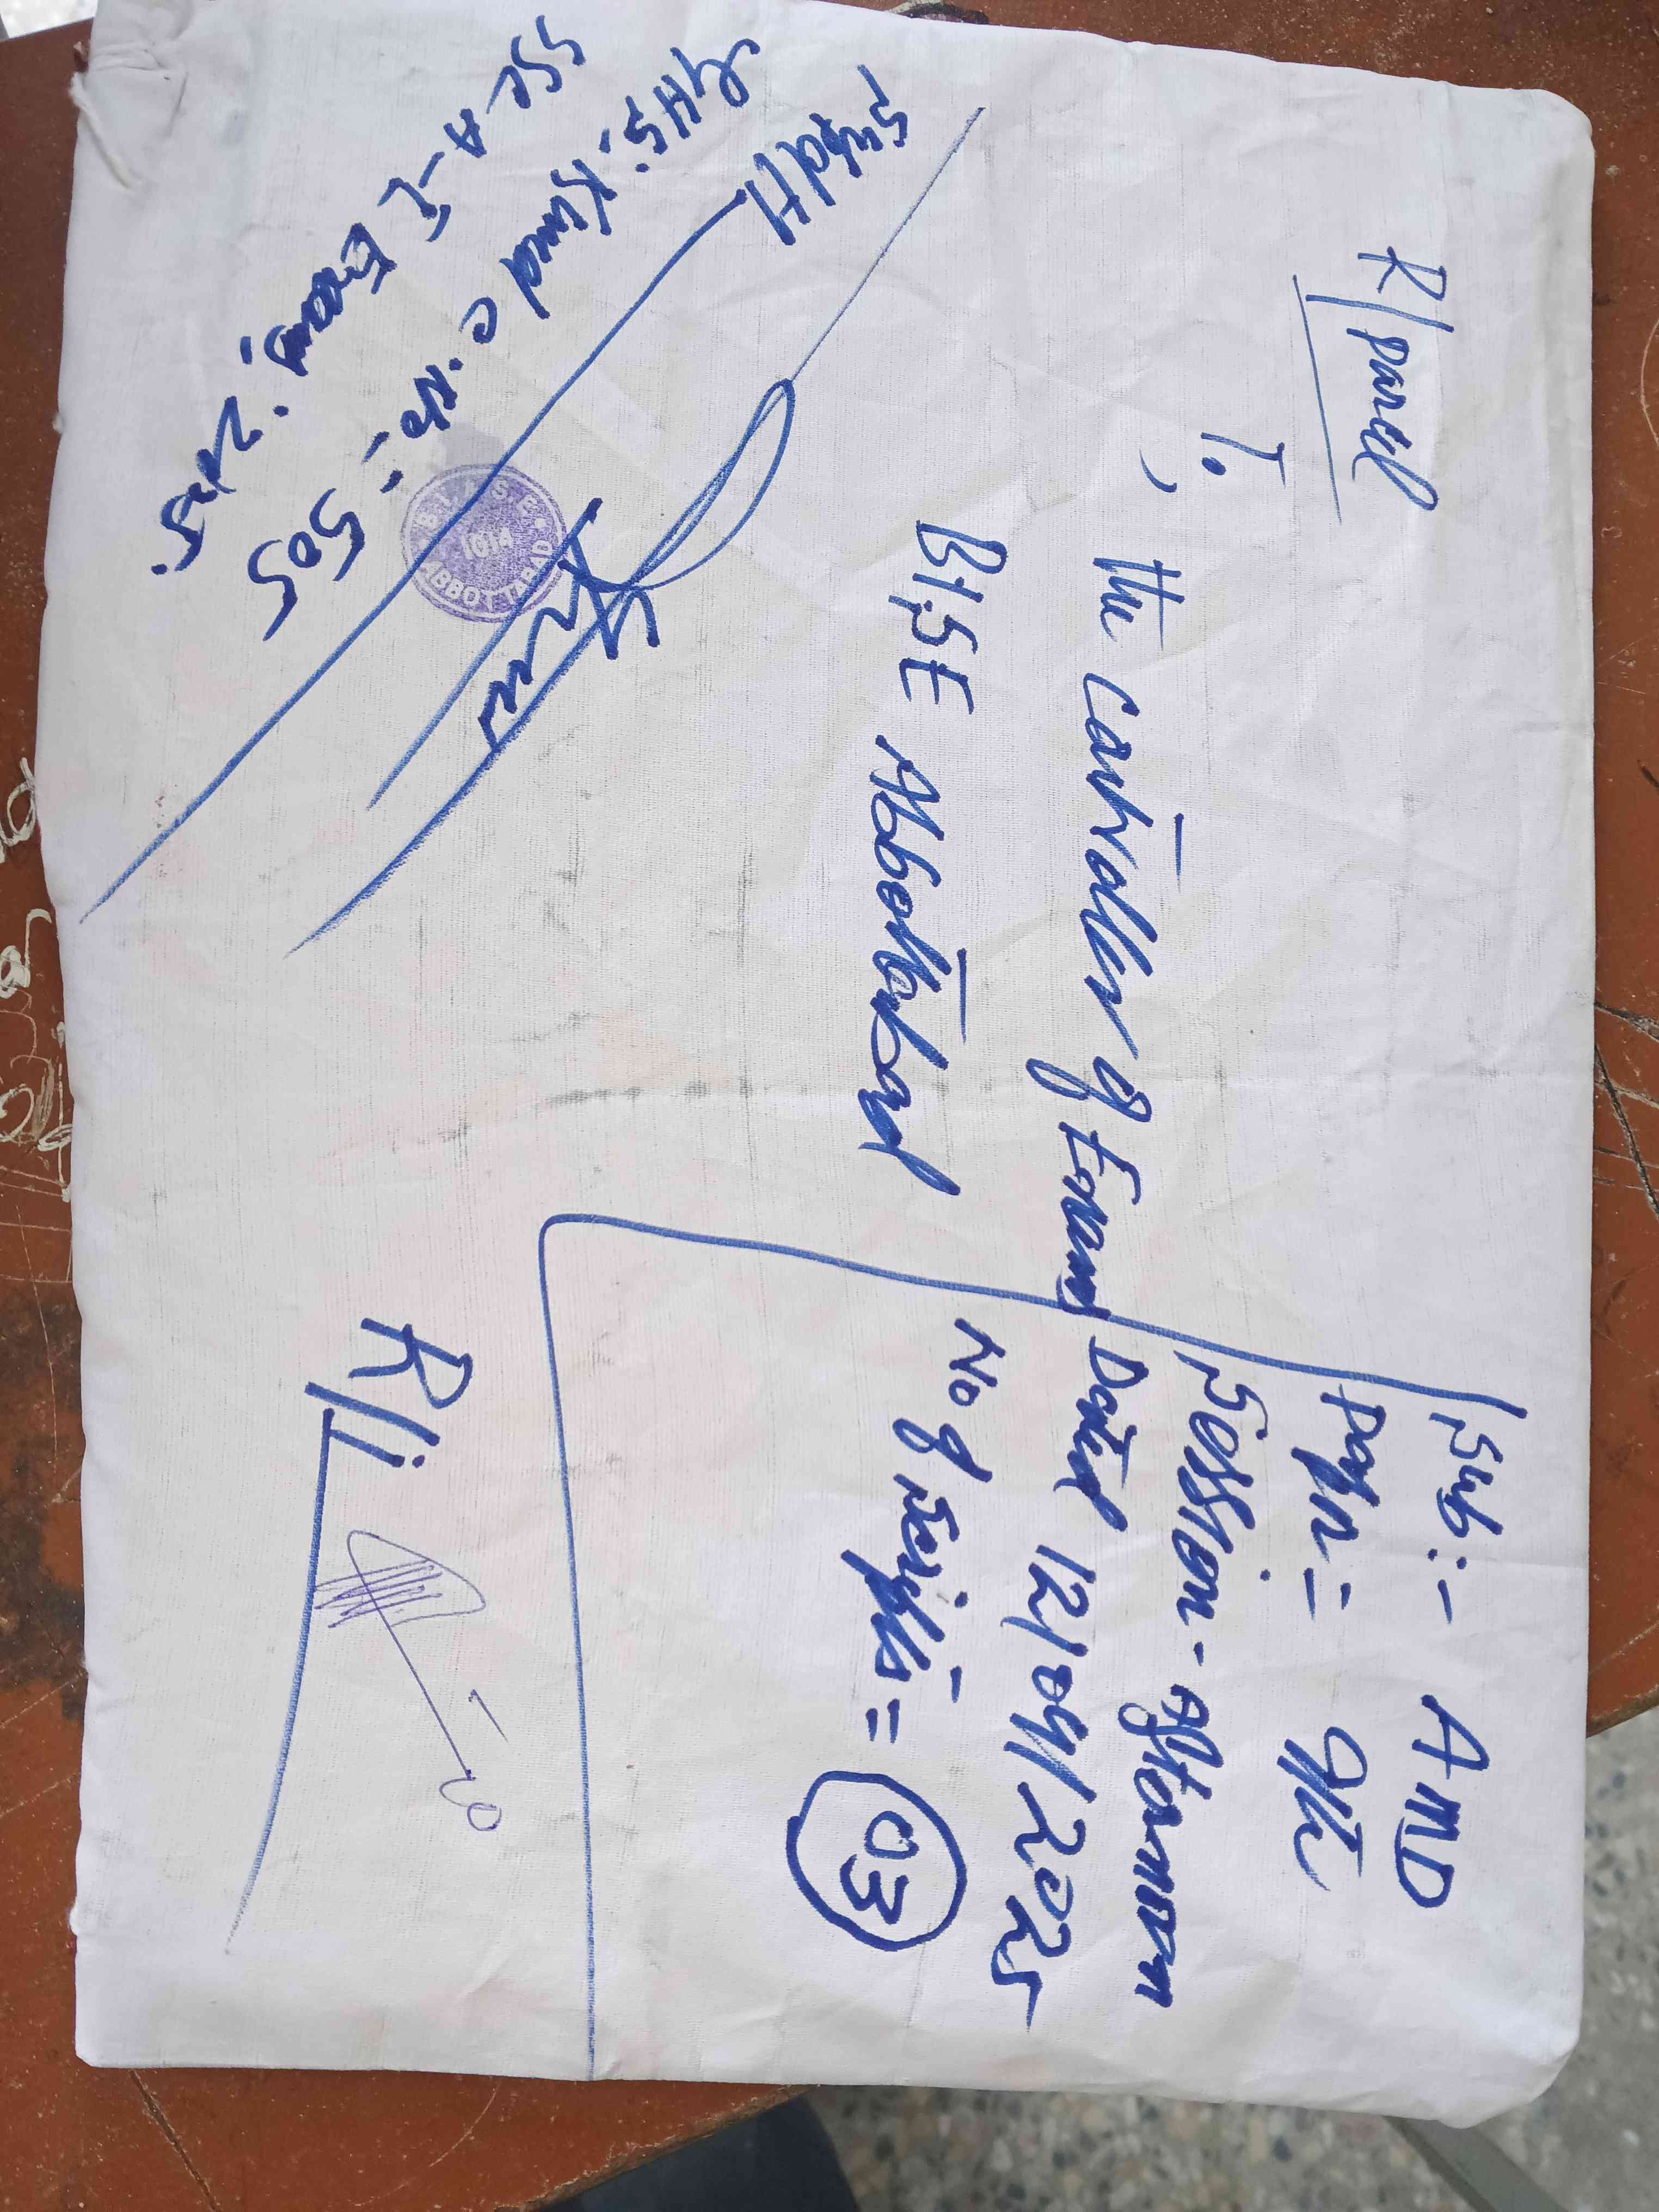 R/parcel
To,
The Controller of Exams
BISE Abbottabad
Sub:- AMD
Paper= 9th
Session - Afternoon
Dated 12/04/2025
No of scripts = 03
Supdtt
GHS: Kund C. No: 505
SSC A-I Exam: 2025
B.I.&S.E.
1014
ABBOTTABAD
R/i